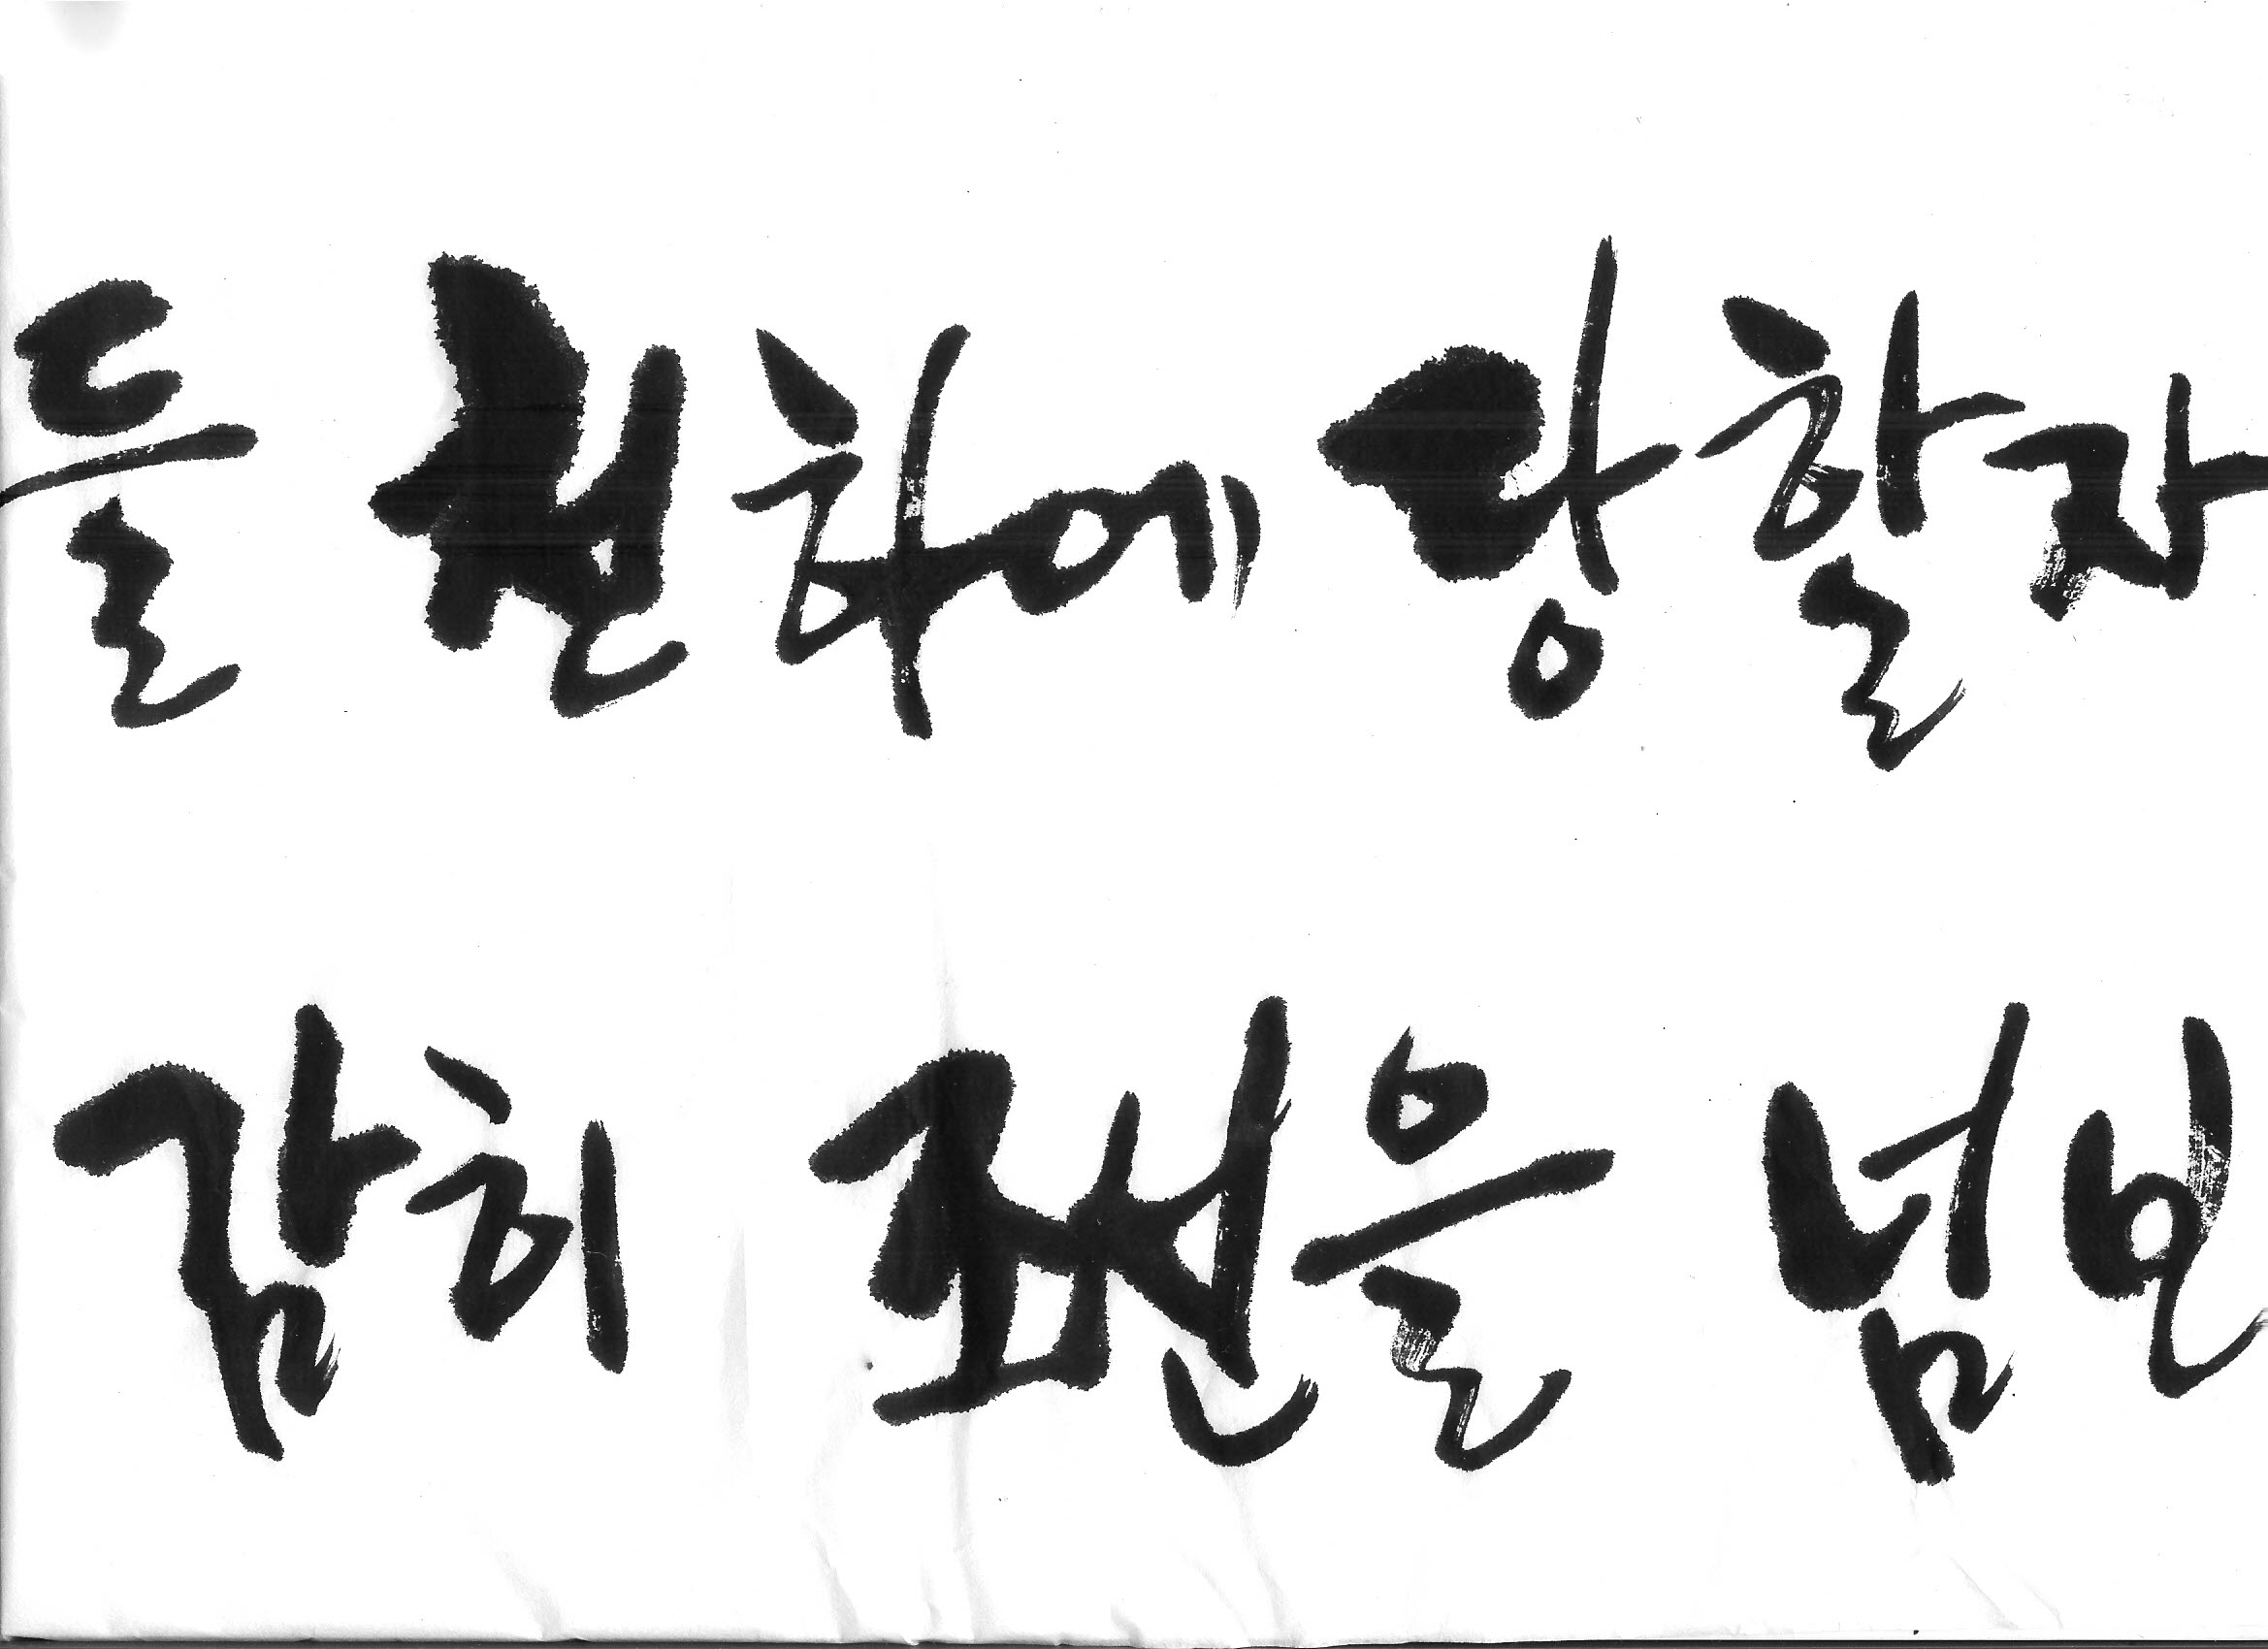 들 천하에 당할자
감히 조선을 넘보